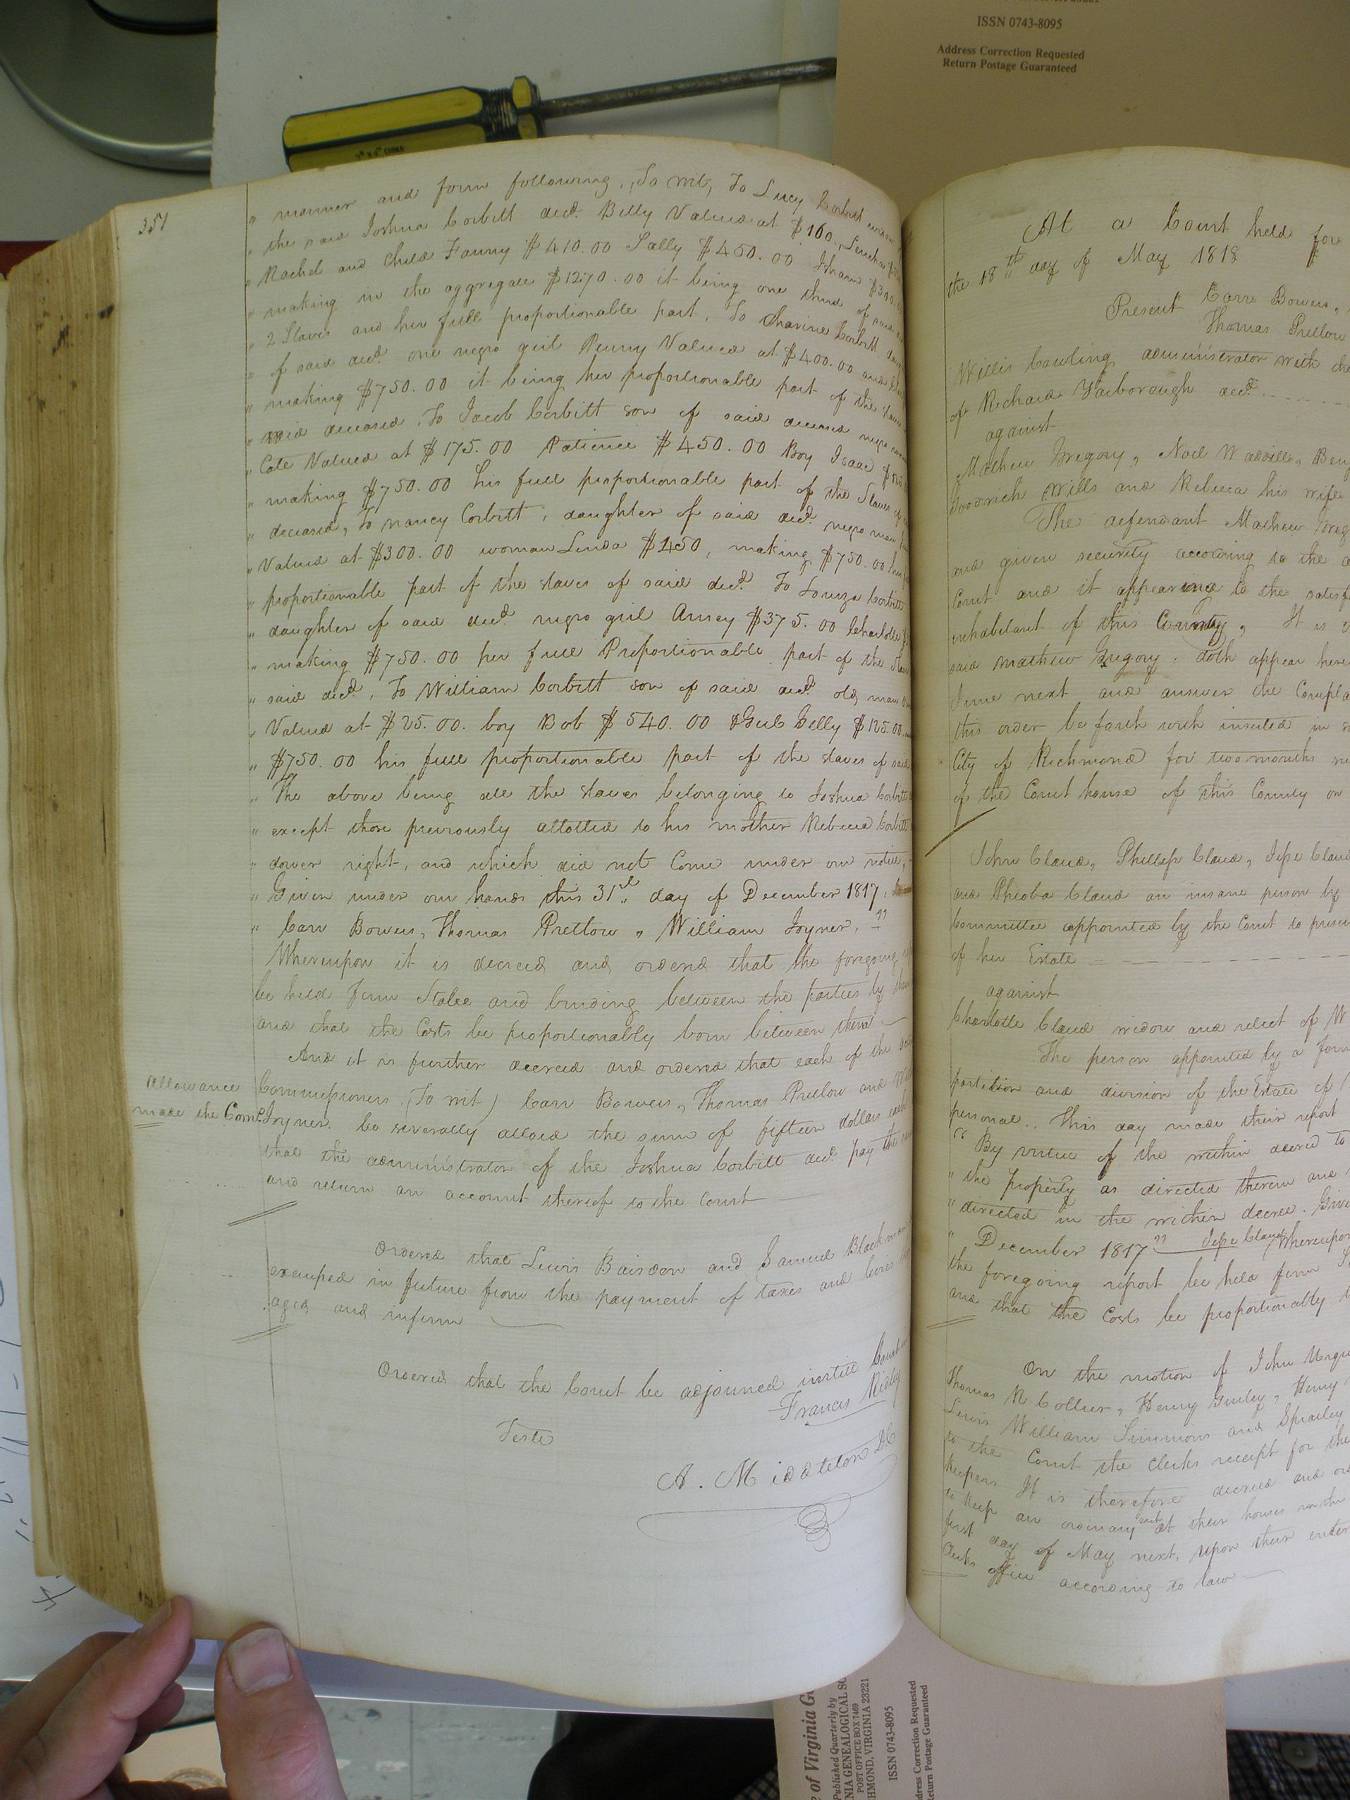 ISSN 0743-8095
Address Correction Requested
Return Postage Guaranteed
351
" manner and form following, To wit, To Lucy Corbitt
" the said Joshua Corbitt decd. Billy Valued at $160.
" Rachel and Child Fanny $410.00 Sally $450.00 Isham $300
" making in the aggregate $1270.00 it being one third of said
" 2 Slaves and her full proportionable part, To Charine Corbitt
" of said decd one negro girl Penny Valued at $400.00 and
" making $750.00 it being her proportionable part of the
" said deceased. To Jacob Corbitt son of said deceased negro
" Cate Valued at $175.00 Patience $450.00 Boy Isaac
" making $750.00 his full proportionable part of the Slaves
" deceased, To Nancy Corbitt, daughter of said decd. negro man
" Valued at $300.00 woman Linda $450, making $750.00 her
" proportionable part of the slaves of said decd. To Louiza Corbitt
" daughter of said decd negro girl Amey $375.00 Charlotte
" making $750.00 her full Proportionable part of the
" said decd. To William Corbitt son of said decd old man
" Valued at $25.00. boy Bob $540.00 & Girl Gelly $185.00
" $750.00 his full proportionable part of the slaves of said
" The above being all the slaves belonging to Joshua Corbitt
" except those previously allotted to his mother Rebecca Corbitt
" dower right, and which did not Come under our notice,
" Given under our hands this 31st day of December 1817,
" Carr Bowers, Thomas Pretlow, William Joyner. "
Whereupon it is decreed and ordered that the foregoing
be held firm Stable and binding between the parties by
and that the Costs be proportionably born between them
And it is further decreed and ordered that each of the
Allowance
made the Comrs.
Commissioners (To wit) Carr Bowers, Thomas Pretlow and
Joyner. be severally allowed the sum of fifteen dollars each
that the administrator of the Joshua Corbitt decd. pay the
and return an account thereof to the Court
Ordered that Lewis Baisdon and Samuel Blackman
exempted in future from the payment of taxes and levies
aged and infirm
Ordered that the Court be adjourned untill Court
Francis Ridley
Teste
A. Middleton DC
At a Court held for
the 18th day of May 1818
Present Carr Bowers,
Thomas Pretlow
Willis Cowling administrator with the
of Richard Yarborough decd.
against
Mathew Gregory, Noel Waddill,
Goodrich Wills and Rebecca his wife
The defendant Mathew
and given security according to the
Court and it appearing to the satisf
inhabitant of this County, It is
said Mathew Gregory. doth appear here
June next and answer the Compla
this order be forth with inserted in
City of Richmond for two months
of the Court house of this County on
John Claud, Phillip Claud, Jesse Claud
and Pheoba Claud an insane person by
Committee appointed by the Court to
of her Estate
against
Charlotte Claud widow and relect of W
The person appointed by a form
partition and division of the Estate of
personal. This day made their report
" By virtue of the within decree to
" the property as directed therein and
" directed in the within decree. Given
" December 1817 " Jesse Claud, Whereupon
the foregoing report be held firm
and that the Costs be proportionably
On the motion of John
Thomas R Collier, Henry Gurley, Henry
Lewis William Simmons and Spratley
to the Court the Clerks receipt for the
keepers It is therefore decreed and
to keep an ordinary each at their houses in the
first day of May next, upon their enter
Clerks office according to law
of Virginia
Published Quarterly by
POST OFFICE BOX 7469
RICHMOND, VIRGINIA 23221
ISSN 0743-8095
Address Correction Requested
Return Postage Guaranteed